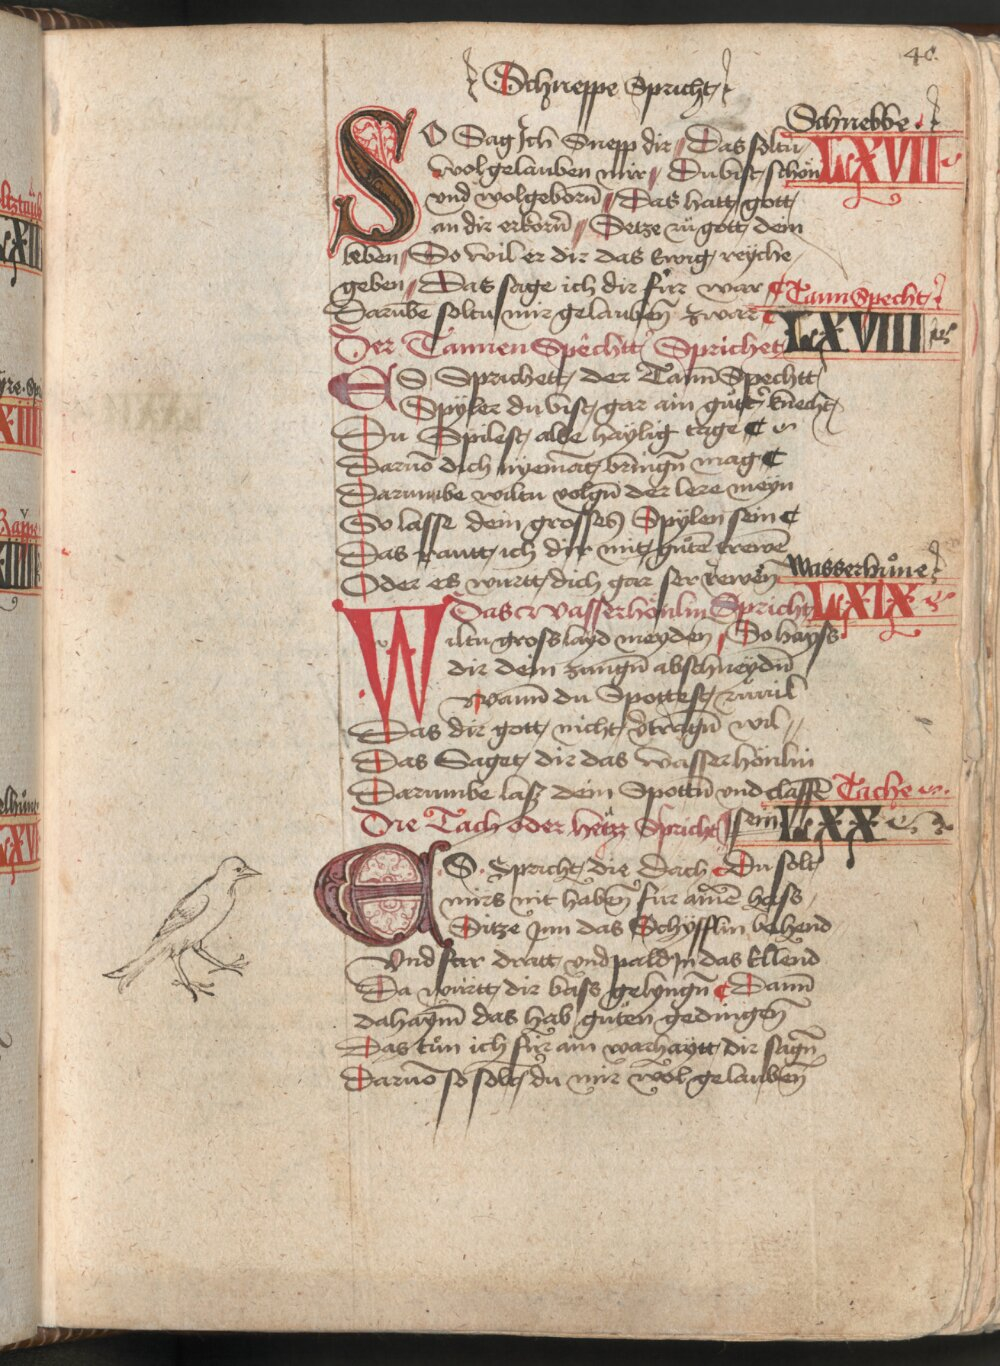 40.
Schneppe Spricht
Schnebbe.
LXVII
SO Sag Ich Snepp dir Das soltu
wol gelauben mir Du bist schön
vnd wolgeborn̄ Das hatt gott
an dir erkorn̄ Setze zů gott dein
leben So wil er dir das Ewig reyche
geben Das sage ich dir für war
Darūbe soltu mir gelauben̄ zwar
TannSpecht
LXVIII
Der TannenSpechtt Sprichet
ES Sprichett der Tann̄Spechtt
Spyler du bist gar ain gůtt knecht
Du Spilest alle haylig tage
Darūo dich nyemāt bringn̄ mag
Darumbe wiltu volgn̄ der lere meyn
So lasse dein grosses Spylen sein
Das rautt ich dir mit gůtē trewē
Oder es wurtt dich gar ser rewēn
Wasserhůne
LXIX
Das wasserhönlin Spricht
Wiltu gross layd meyden So hayss
dir dein zungn̄ abschneydn̄
wann̄ du Spottest zůuil
Das dir gott nicht v̄tragn̄ wil
Das Saget dir das wasserhönlin
Darumbe lasz dein Spottn̄ vnd claffē
sein
Tache
LXX
Die Tach oder hetzz Spricht
ES Spricht die Dach Du solt
mirs nit haben̄ für ainē hass
Sitze Inn das Schyfflin behend
Vnd far dratt vnd pald In das Ellend
Da württ dir bass gelyngn̄ Dann̄
dahaym̄ das hab gůten gedingen̄
Das tůn ich für ain warhaytt dir sagn̄
Darūo so solt du mir wol gelauben̄